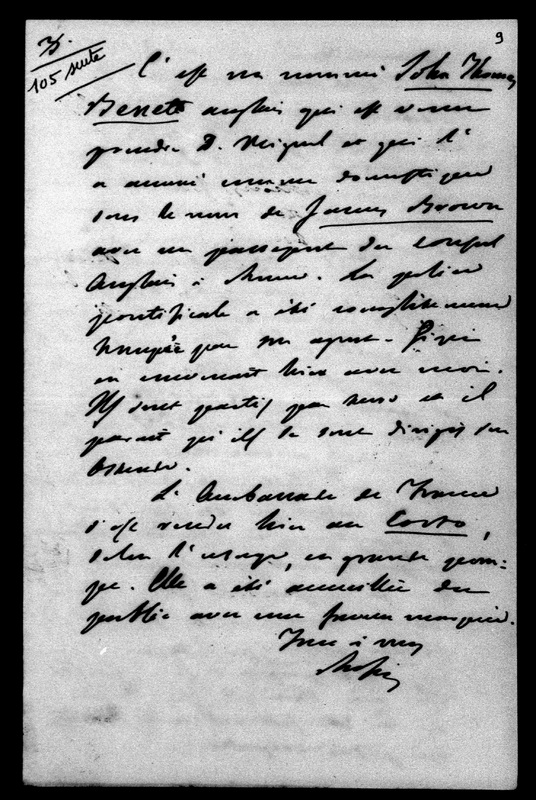 9
105 suite
C'est un nommé John Thomas
Benett anglais qui est venu
prendre D. Miguel et qui l'
a amené comme domestique
sous le nom de James Brown
avec un passeport du consul
Anglais à Rome. La police
pontificale a été complètement
trompée par son agent.
en
hier avec moi.
Ils sont partis par mer et il
paraît qu'ils se sont dirigés sur
L'Ambassade de France
s'est rendue hier au Corso,
selon l'usage, en grande pom=
pe. Elle a été accueillie du
public avec une faveur marquée.
Tout à vous
Rossi